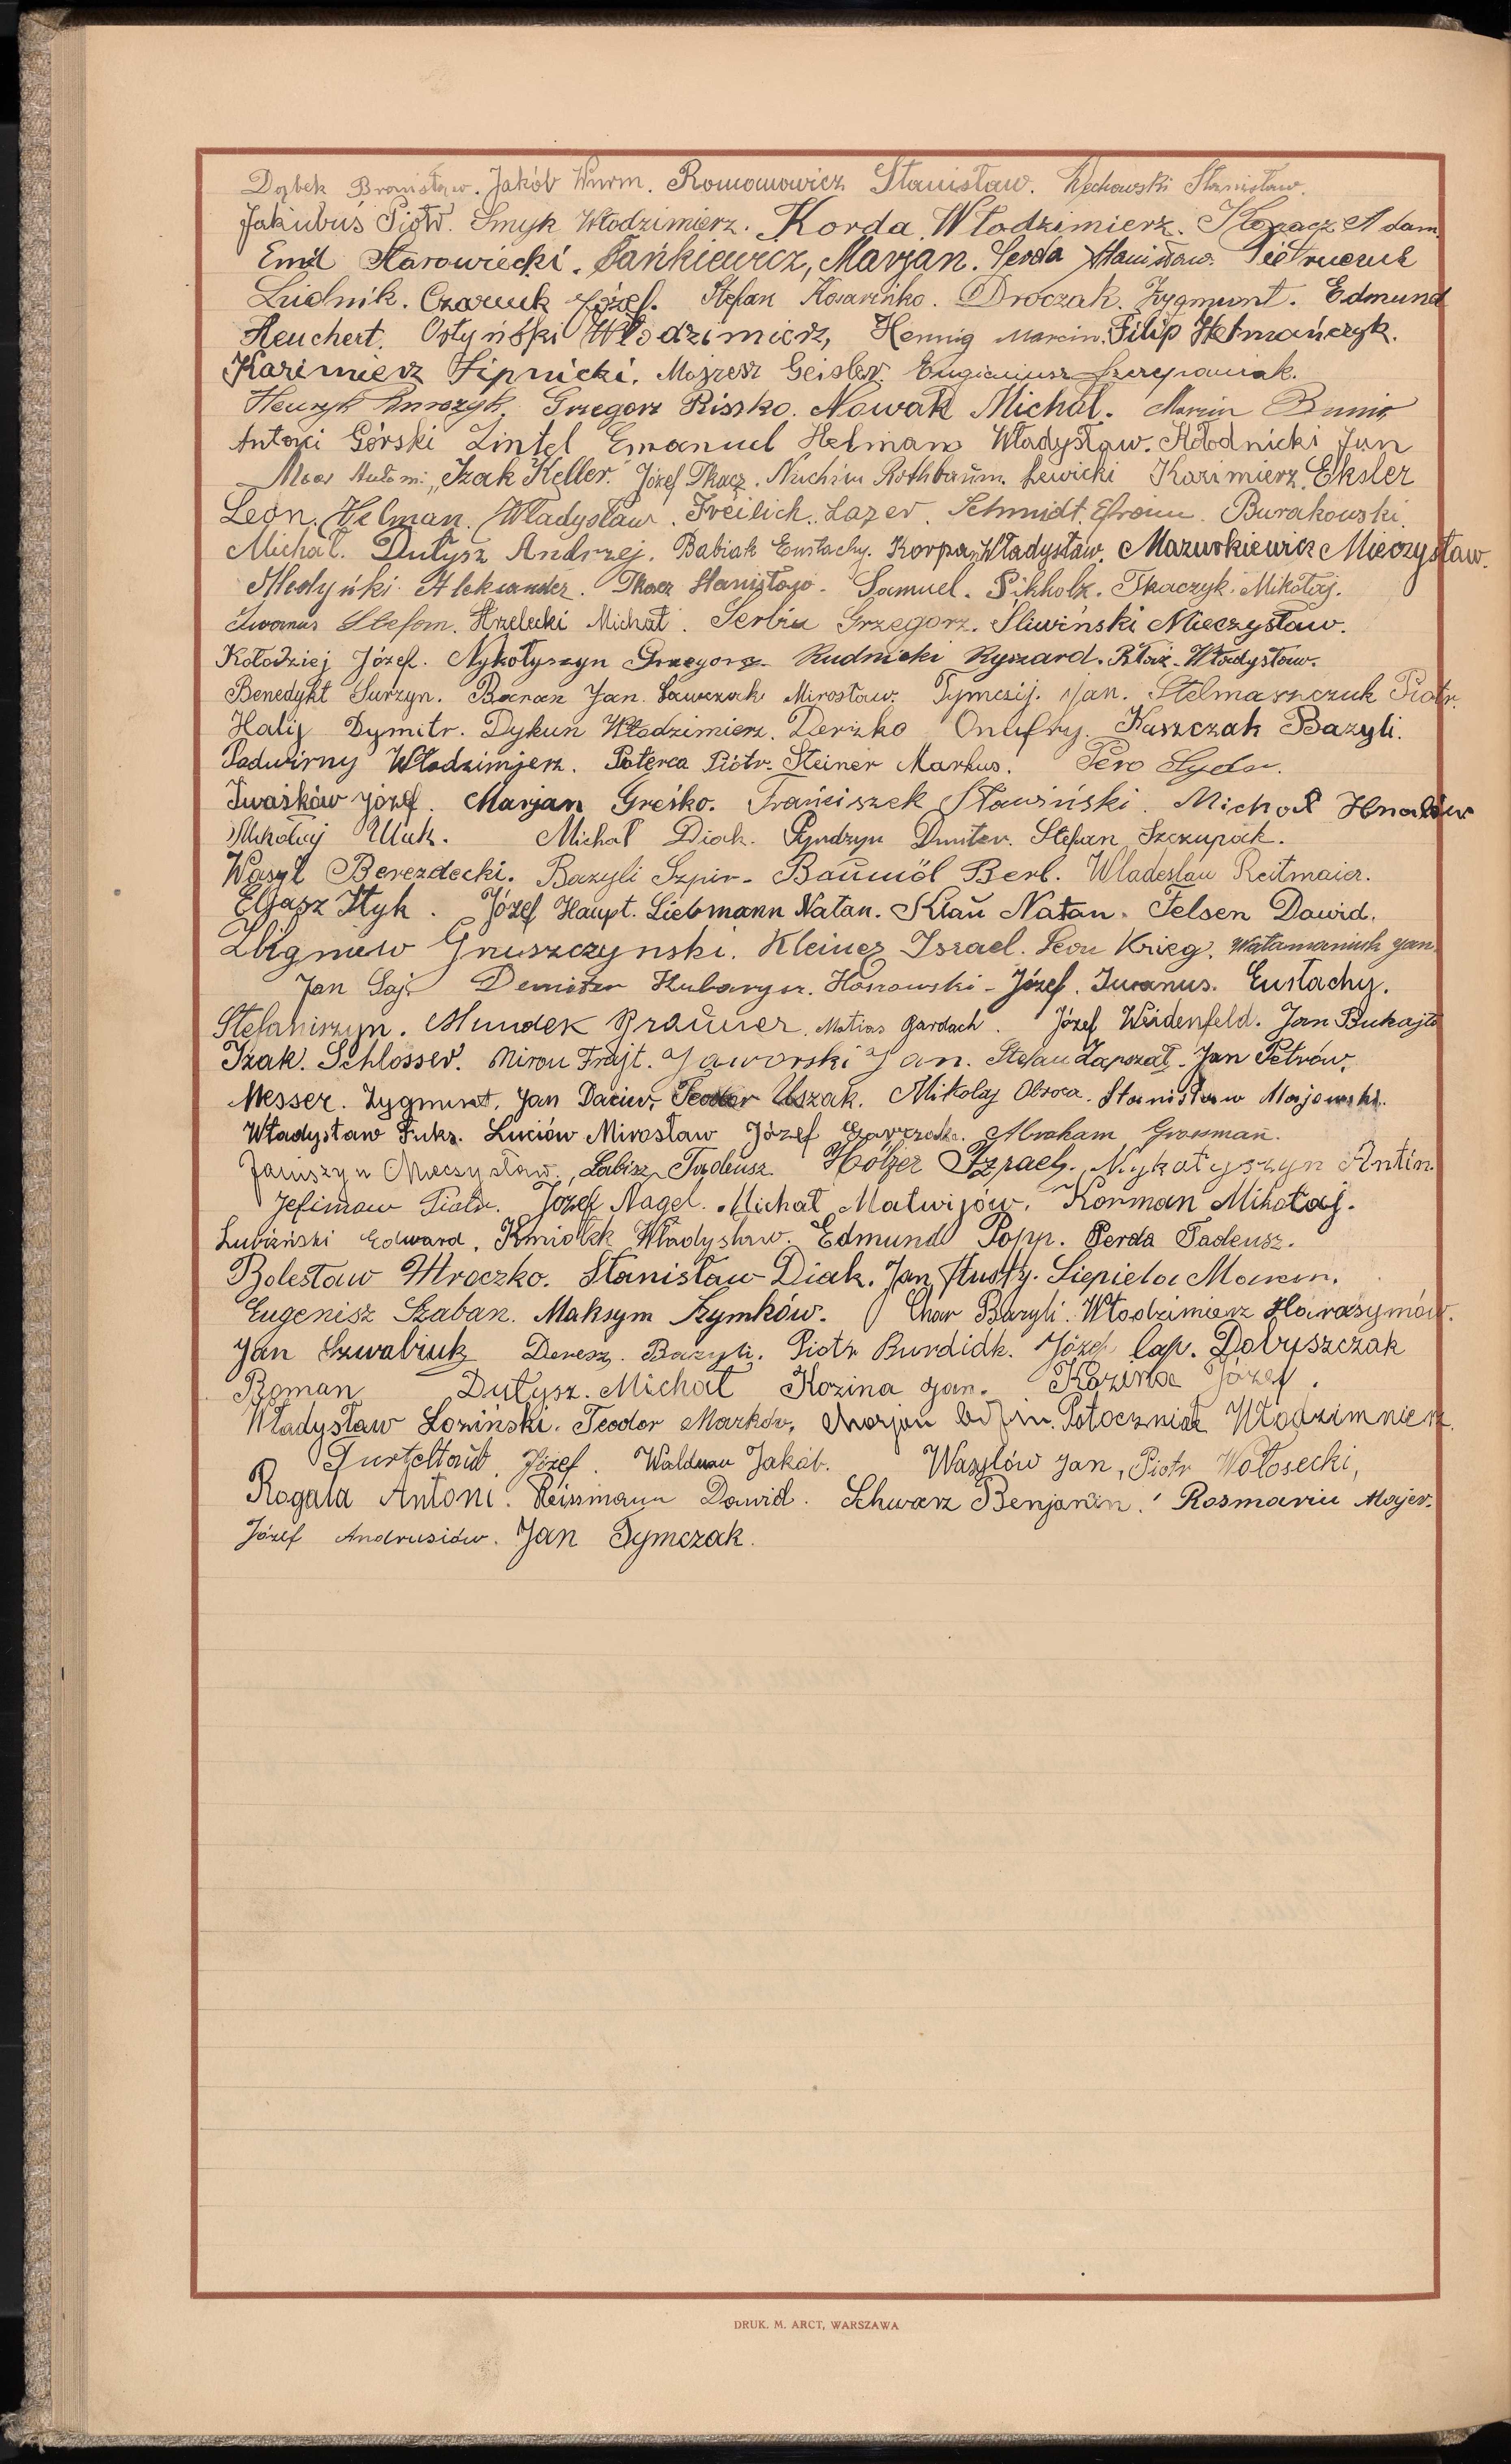 Dąbek Bronisław. Jakób Wurm. Romanowicz Stanisław. Stanisław.
Jakubuś Piotr. Smyk Włodzimierz. Korda Włodzimierz. Adam.
Emil Starowiecki. Fańkiewicz, Marjan. Serda Stanisław. Pietruczuk
Ludnik. Czaruk Józef. Stefan Kosarińko. Droczak. Zygmunt. Edmund
Heuchert. Ostyński Włodzimierz, Hennig Marcin. Filip Hetmańczyk.
Kazimierz Lipnicki. Mojżesz Geisler. Eugieniusz Szczepaniak.
Henryk Grzegorz Rissko. Nowak Michał. Marcin
Antoni Górski Zintel Emanuel Helman Władysław. Kłodnicki Jan
Moos Antoni. Izak Keller. Józef Tkacz. Nuchim Rothbaum. Lewicki Kazimierz. Eksler
Leon. Helman. Władysław. Freilich. Lazer. Schmidt. Efroim. Burakowski.
Michał. Dutysz Andrzej. Babiak Eustachy. Korpa, Władysław. Mazurkiewicz Mieczysław.
Medyński Aleksander. Tkacz Stanisław. Samuel. Sikholz. Tkaczyk. Mikołaj.
Iwanus Stefan. Strzelecki Michał. Serbin Grzegorz. Śliwiński Mieczysław.
Kołodziej Józef. Nykołyszyn Grzegorz. Rudnicki Ryszard. Błaż. Władysław.
Benedykt Surzyn. Baran Jan. Sawczak Mirosław. Tymczij. Jan. Stelmaszczuk Piotr.
Halij Dymitr. Dykun Włodzimierz. Derżko Onufry. Kaszczak Bazyli.
Padwirny Włodzimierz. Poterca Piótr. Steiner Markus. Pero
Iwaśków Józef. Marjan Greśko. Franciszek Sławiński. Michał Hnatów
Mikołaj Uiak. Michał Diak. Pyndzyn Dmiter. Stefan Szczupak.
Wasyl Berezdecki. Bazyli Szpir. Baumöl Berl. Wladeslau Reitmaier.
Eljasz Styk. Józef Haupt. Liebmann Natan. Klau Natan. Felsen Dawid.
Zbigniew Gruszczynski. Kleiner Israel. Leon Krieg. Watamaniuk Jan.
Jan Saj. Demiter Hosnowski Józef. Iwanus. Eustachy.
Stefaniszyn. Mundek Brauner. Matias Gardach. Józef Weidenfeld. Jan Bukajło
Izak. Schlosser. Miron Frajt. Jaworski Jan. Stefan Zapszał. Jan Petrów.
Messer. Zygmunt. Jan Daciw. Teodor Uszak. Mikolaj Obroca. Stanisław Majewski.
Władysław Fuks. Luciów Mirosław Józef Abraham Grosman.
Janiszyn Mieczysław. Łabisz Tadeusz. Hölzer Izrael. Nykołyszyn Antin.
Jefimow Piotr. Józef Nagel. Michał Matwijów. Korman Mikołaj.
Łuziński Edward. Kmiotek Władysław. Edmund Popp. Perda Tadeusz.
Bolesław Mroczko. Stanisław Diak. Jan Tłusty. Siepiela Marcin.
Eugenisz Szaban. Maksym Szymków. Char Bazyli. Włodzimierz Harasymów.
Jan Szwabiuk Deresz. Bazyli. Piotr Burdidk. Józef Cap. Dobryszczak
Roman Dutysz. Michał Kozina Jan. Kozina Józef.
Władysław Łoziński. Teodor Marków, Marjan Potoczniak Włodzimnierz.
Turteltaub. Józef. Waldman Jakób. Wasylów Jan, Piotr Wołosecki,
Rogala Antoni. Reissmann Dawid. Schwarz Benjamin. Rosmarin Majer.
Józef Andrusiów. Jan Tymczak.
DRUK. M. ARCT, WARSZAWA